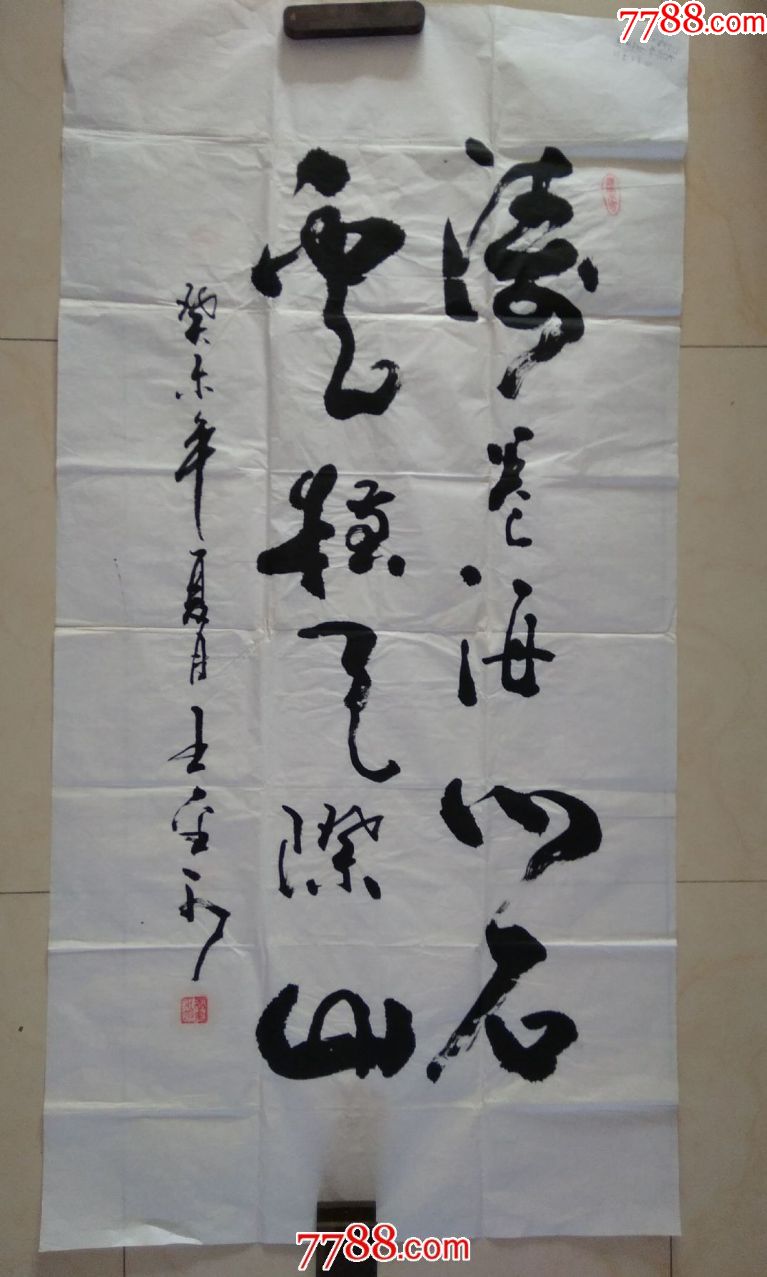 7788.com
濤卷海门石
雲横天際山
癸未年夏月王
7788.com